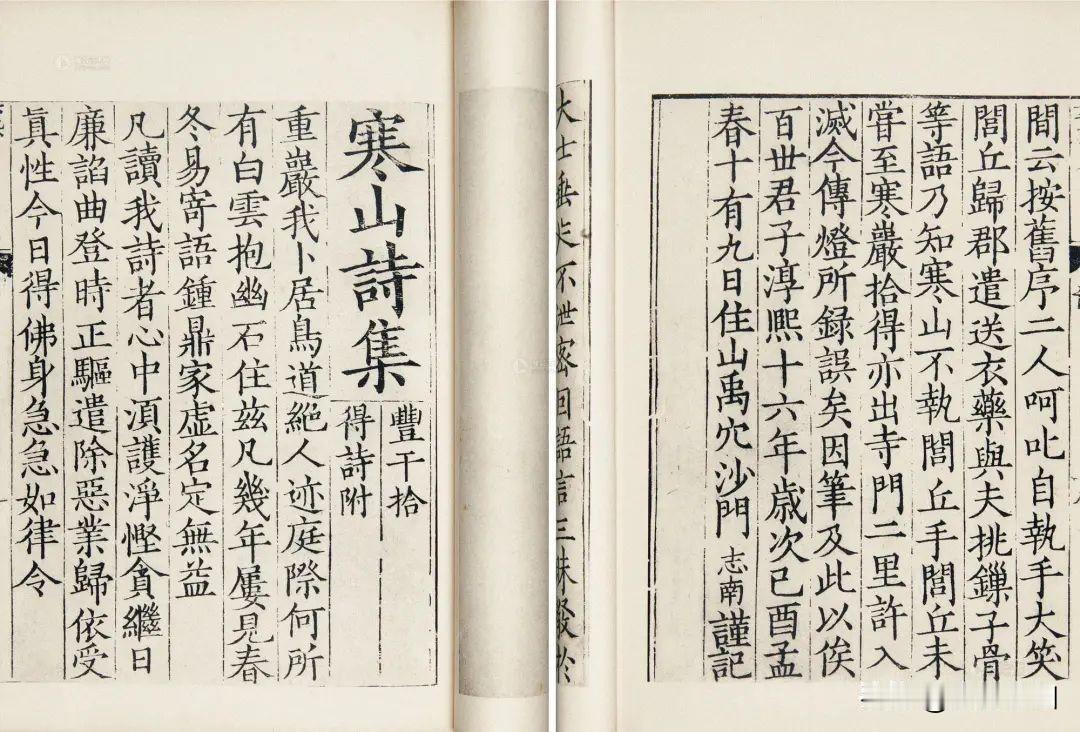 間云按舊序二人呵叱自執手大笑
閭丘歸郡遣送衣藥與夫挑鏁子骨
等語乃知寒山不執閭丘手閭丘未
嘗至寒巖拾得亦出寺門二里許入
滅今傳燈所録誤矣因筆及此以俟
百世君子淳熈十六年歳次己酉孟
春十有九日住山禹穴沙門志南謹記
大士垂不泄密語言三昧發於
寒山詩集
豐干拾
得詩附
重巖我卜居鳥道絶人迹庭際何所
有白雲抱幽石住兹凡幾年屢見春
冬易寄語鍾鼎家虚名定無益
凡讀我詩者心中湏護淨慳貪繼日
廉諂曲登時正驅遣除惡業歸依受
眞性今日得佛身急急如律令